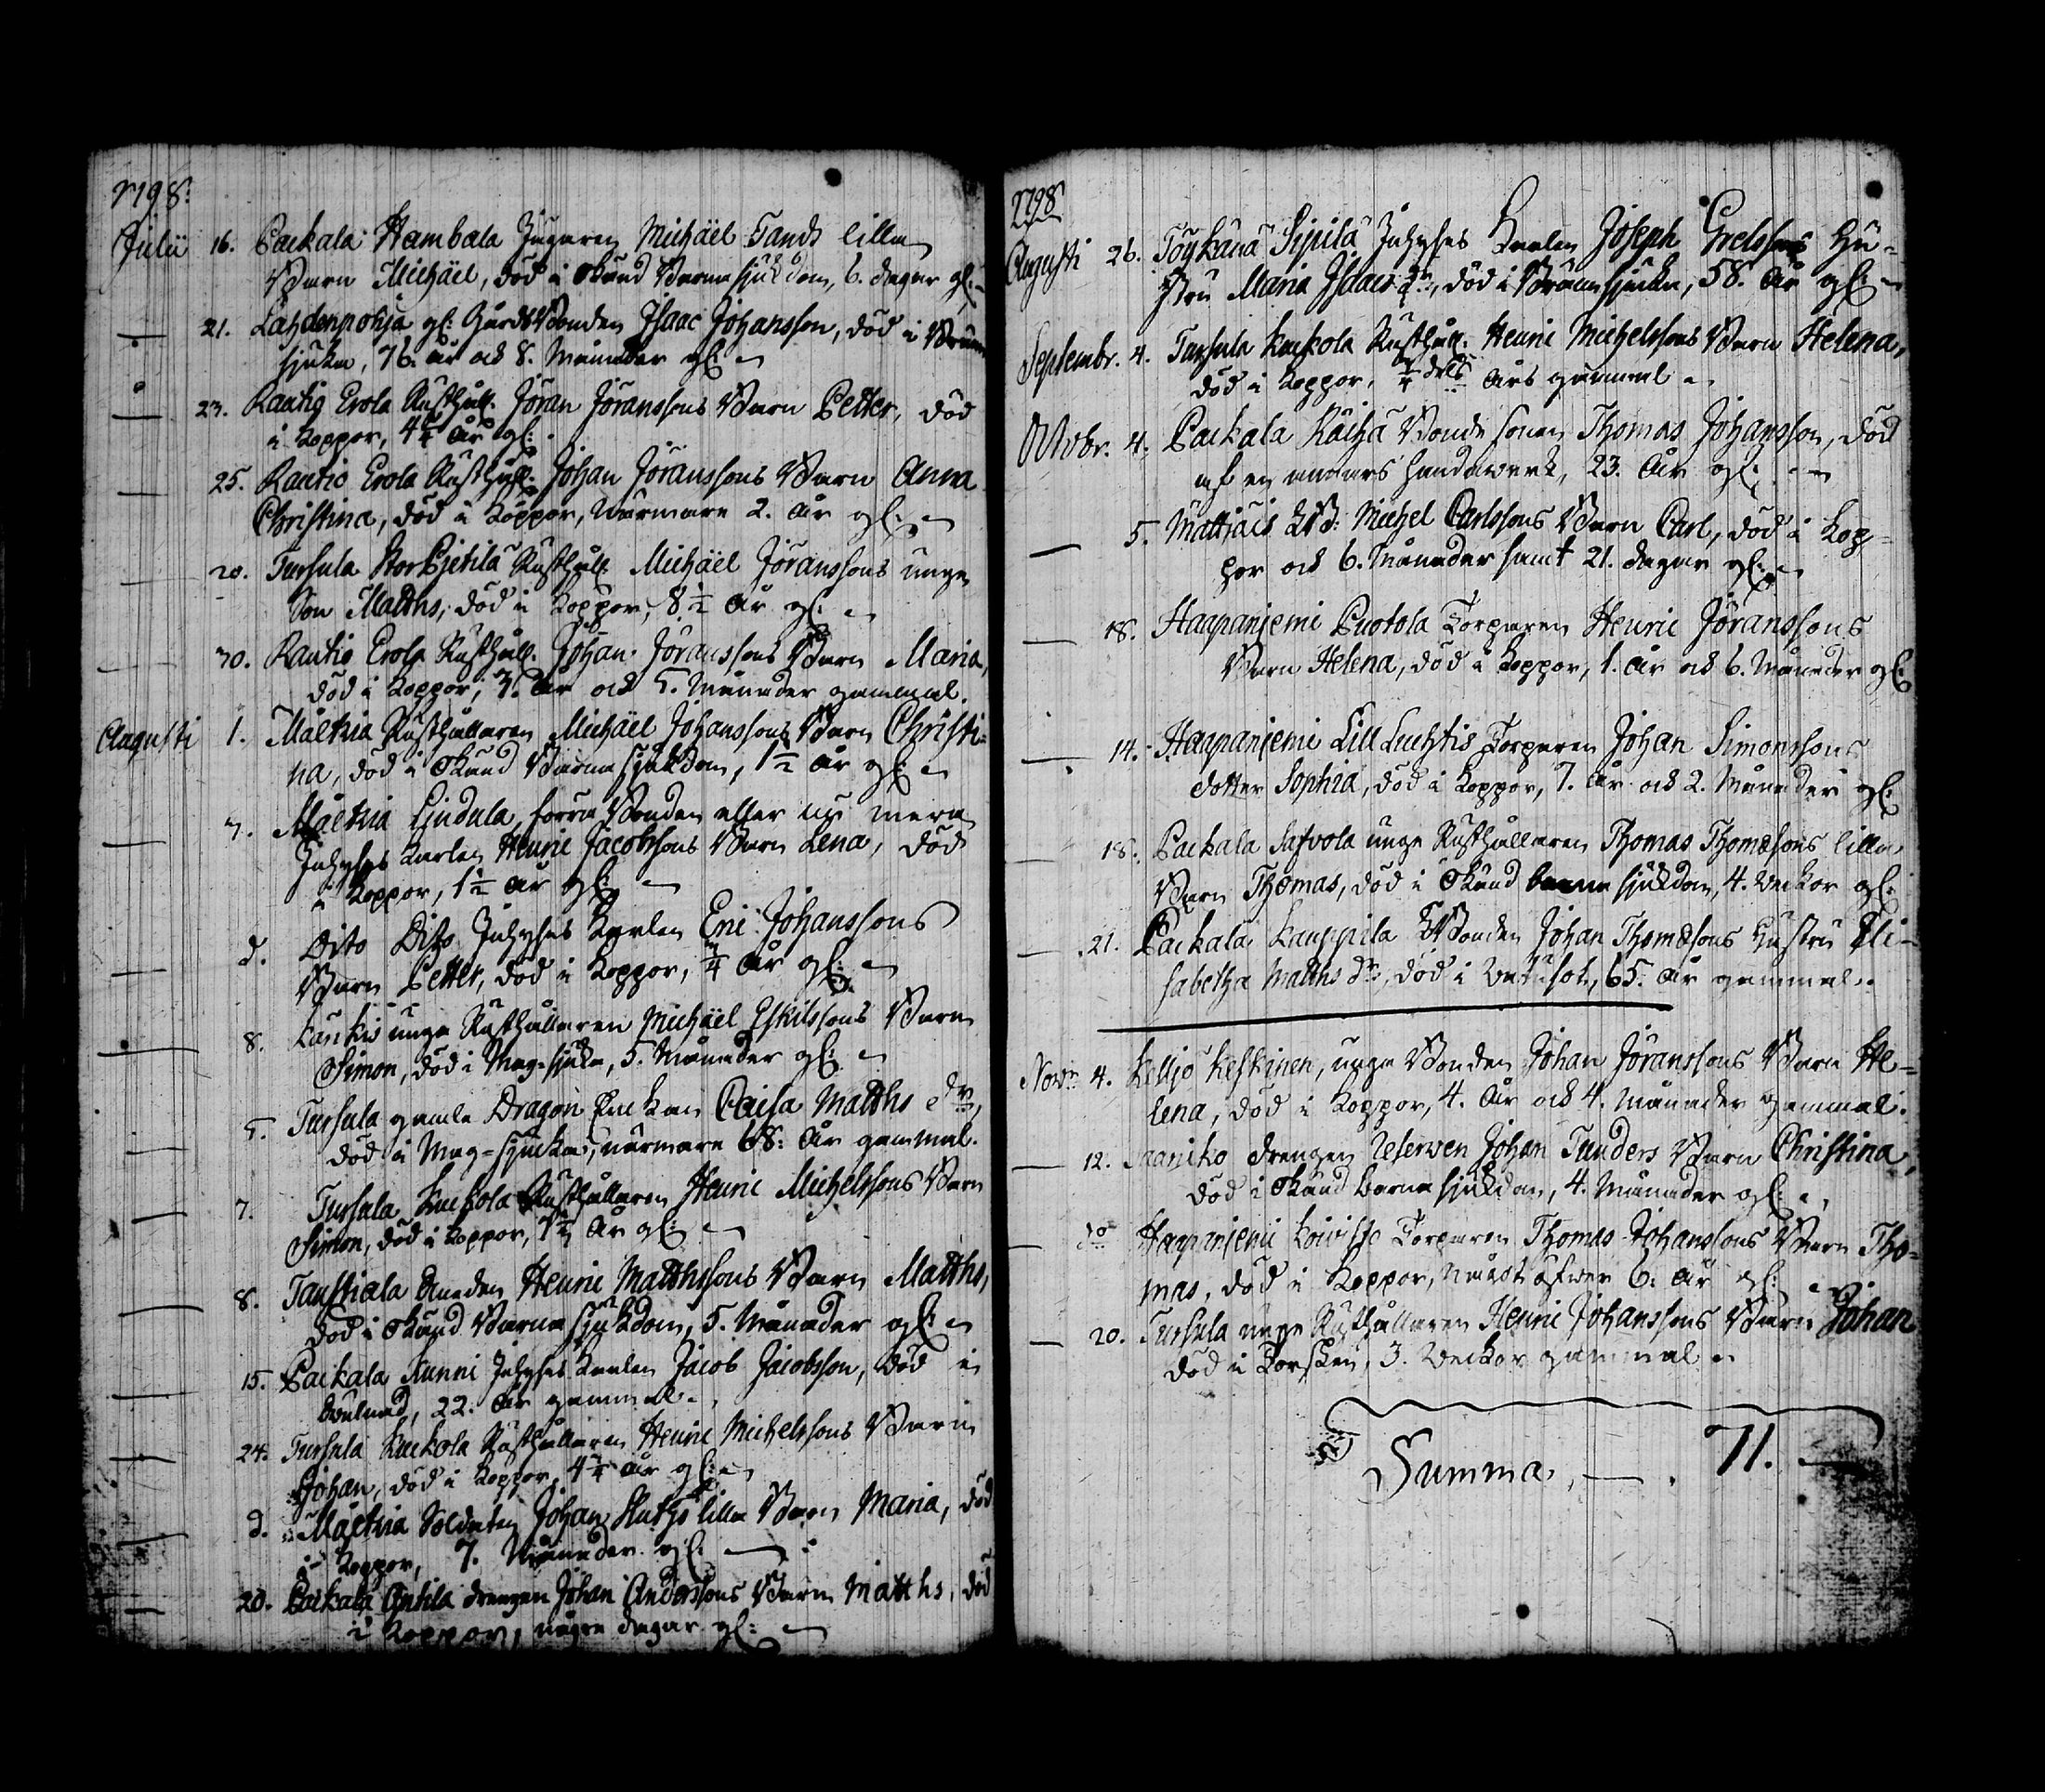 1798.
Julii 16. Paikala Hambala Jngaren Michäel Tands lilla
Barn Michäel, död i okänd Barnasjukdom, 6. dagar gl:
21. Lahdenpohja gl: Gårds Bonden Isaac Johansson, död i Bränn
sjuka, 76. år och 8. Månader gl:
23. Rautio Erola Rusthåll. Jöran Jöranssons Barn Petter, död
i koppor, 4 1/4 år gl:
25. Rautio Erola Rusthåll. Johan Jöranssons Barn Anna
Christina, död i koppor, närmare 2. år gl:
20. Tursula StorPietilä Rusthåll. Michäel Jöranssons unge
Son Matths, död i koppor, 8 1/2 år gl:
30. Rautio Erola Rusthåll. Johan Jöranssons Barn Maria,
död i koppor, år och 5. Månader gammal.
Augusti 1. Mälkiä Rusthållaren Michäel Johanssons Barn Christi=
na, död i okänd Barnasjukdom, 1 1/2 år gl:
Mälkiä förra Bonden eller nu mera
Jnhyses karlen Henric Jacobssons Barn Lena, död
i koppor, 1 1/2 år gl:
d. Dito Dito Jnhyses karlen Eric Johanssons
Barn Petter, död i koppor, år gl:
8. unge Rusthållaren Michäel Eskilssons Barn
Simon, död i Mag-sjuka, 5. Månader gl:
5. Tursula gamla Dragon Enckan Caisa Matths dr,
död i Mag-sjuka, närmare 68. år gammal.
7. Tursula Kuckola Rusthållaren Henric Michelssons Barn
Simon, död i koppor, år gl:
8. Taustiala Bonden Henric Matthssons Barn Matths,
död i okänd Barnasjukdom, 5. Månader gl:
15. Paikala Nunni Jnhyses karlen Jacob Jacobsson, död i
22. år gammal.
24. Tursula Kuckola Rusthållaren Henric Michelssons Barn
Johan, död i koppor, 4 1/4 år gl:
d. Mälkiä Soldaten Johan lilla Barn Maria, död
i koppor, 7. Månader gl:
20. Paikala Anttila drengen Johan Anderssons Barn Matths, död
i koppor, några dagar gl:
1798
Augusti 26. Töykänä Sipilä Jnhyses karlen Joseph Grelssons Hu=
stru Maria Isaacs dr, död i Brännsjuka, 58. år gl:
Septembr. 4. Tursula Kuckola Rusthåll. Henric Michelssons Barn Helena,
död i koppor, 3/4 dels års gammal
Octobr. 4. Paikala Räihä Bonde sonen Thomas Johansson, död
af en annars handawerk, 23. år gl:
5. Mattjäis Michel Carlssons Barn Carl, död i kop=
por och 6. Månader samt 21. dagar gl:
18. Haapaniemi Puotola Torparen Henric Jöranssons
Barn Helena, död i koppor, 1. år och 6. Månader gl:
14. Haapaniemi Lill Luchtis Torparen Johan Simonssons
dotter Sophia, död i koppor, 7. år och 2. Månader gl:
18. Paikala Safvola unge Rusthållaren Thomas Thomæsons lilla
Barn Thomas, död i okänd barnasjukdom, 4. Veckor gl:
21. Paikala Kauppila Bonden Johan Thomæsons Hustru Eli=
sabetha Matths dr, död i 65. år gammal.
Novbr. 4. Kelljo Keskinen, unge Bonden Johan Jöranssons Barn He=
lena, död i koppor, 4. år och 4. månader gammal.
12. drengen Johan Tunders Barn Christina,
död i okänd barnasjukdom, 4. Månader gl:
do Haapaniemi Koivisto Torparen Thomas Johanssons Barn Tho=
mas, död i koppor, något öfwer 6. år gl:
20. Tursula unge Rusthållaren Henric Johanssons Barn Johan
död i Torsken, 3. Veckor gammal
Summa, — . 71.